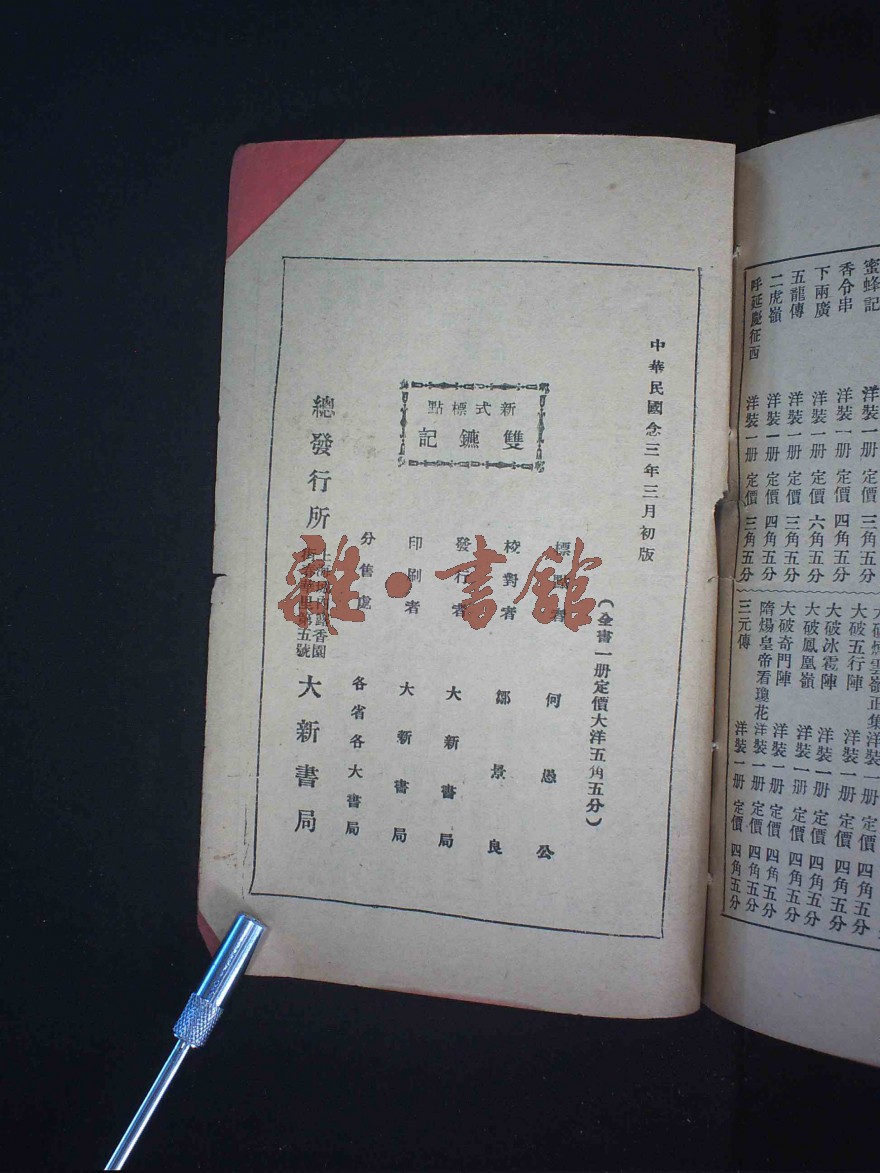 中華民國念三年三月初版
(全書一册定價大洋五角五分)
標點者 何愚公
校對者 鄒景良
發行者 大新書局
印刷者 大新書局
分售處 各省各大書局
新式標點
雙鑣記
總發行所 上海城內露香園
街 華里第五號 大新書局
雜·書館
蜜蜂記 洋裝一册 定價 三角五分
香令串 洋裝一册 定價 四角五分
下兩廣 洋裝一册 定價 六角五分
五龍傳 洋裝一册 定價 三角五分
二虎嶺 洋裝一册 定價 四角五分
呼延慶征西 洋裝一册 定價 三角五分
大破 雲嶺正集 洋裝一册 定價 四角五分
大破五行陣 洋裝一册 定價 四角五分
大破冰雹陣 洋裝一册 定價 四角五分
大破鳳凰嶺 洋裝一册 定價 四角五分
大破奇門陣 洋裝一册 定價 四角五分
隋煬皇帝看瓊花 洋裝一册 定價 四角五分
三元傳 洋裝一册 定價 四角五分